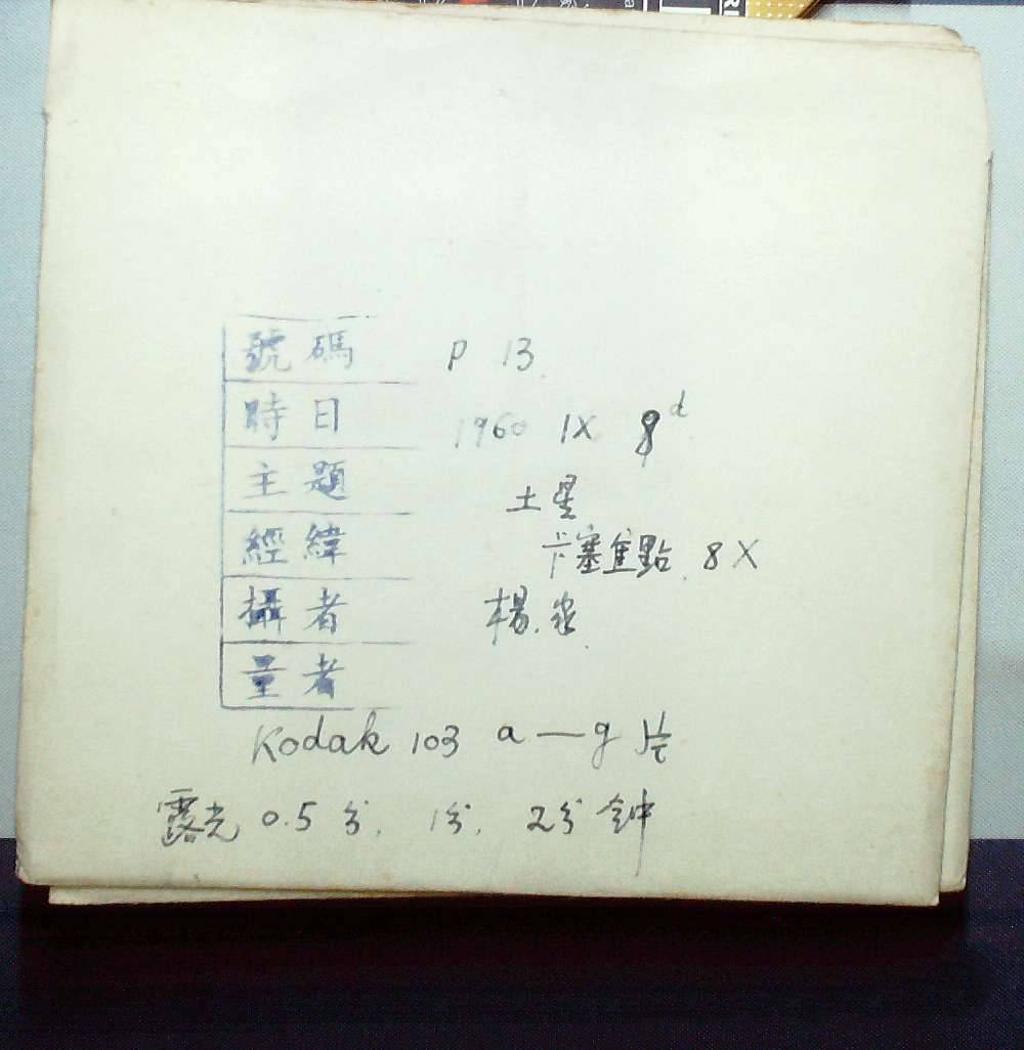 號碼 P 13
時日 1960 IX 8d
主題 土星
經緯 卡塞焦點 8X
攝者 楊.
量者
Kodak 103 a—g 片
露光 0.5 分, 1分, 2分鐘